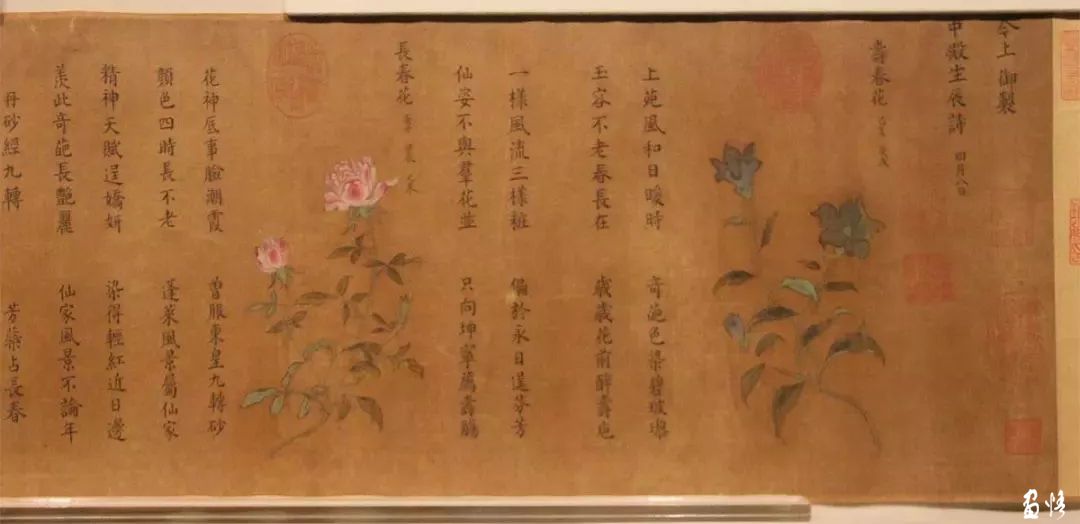 今上御製
中殿生辰詩 四月八日
壽春花
上苑風和日暖時 奇葩色染碧玻璃
玉容不老春長在 歲歲花前醉壽卮
一樣風流三樣粧 偏於永日逞芬芳
仙姿不與羣花並 只向坤寧薦壽觴
長春花
花神底事臉潮霞 曾服東皇九轉砂
顏色四時長不老 蓬萊風景屬仙家
精神天賦逞嬌妍 染得輕紅近日邊
羨此奇葩長艷麗 仙家風景不論年
丹砂經九轉 芳蘂占長春